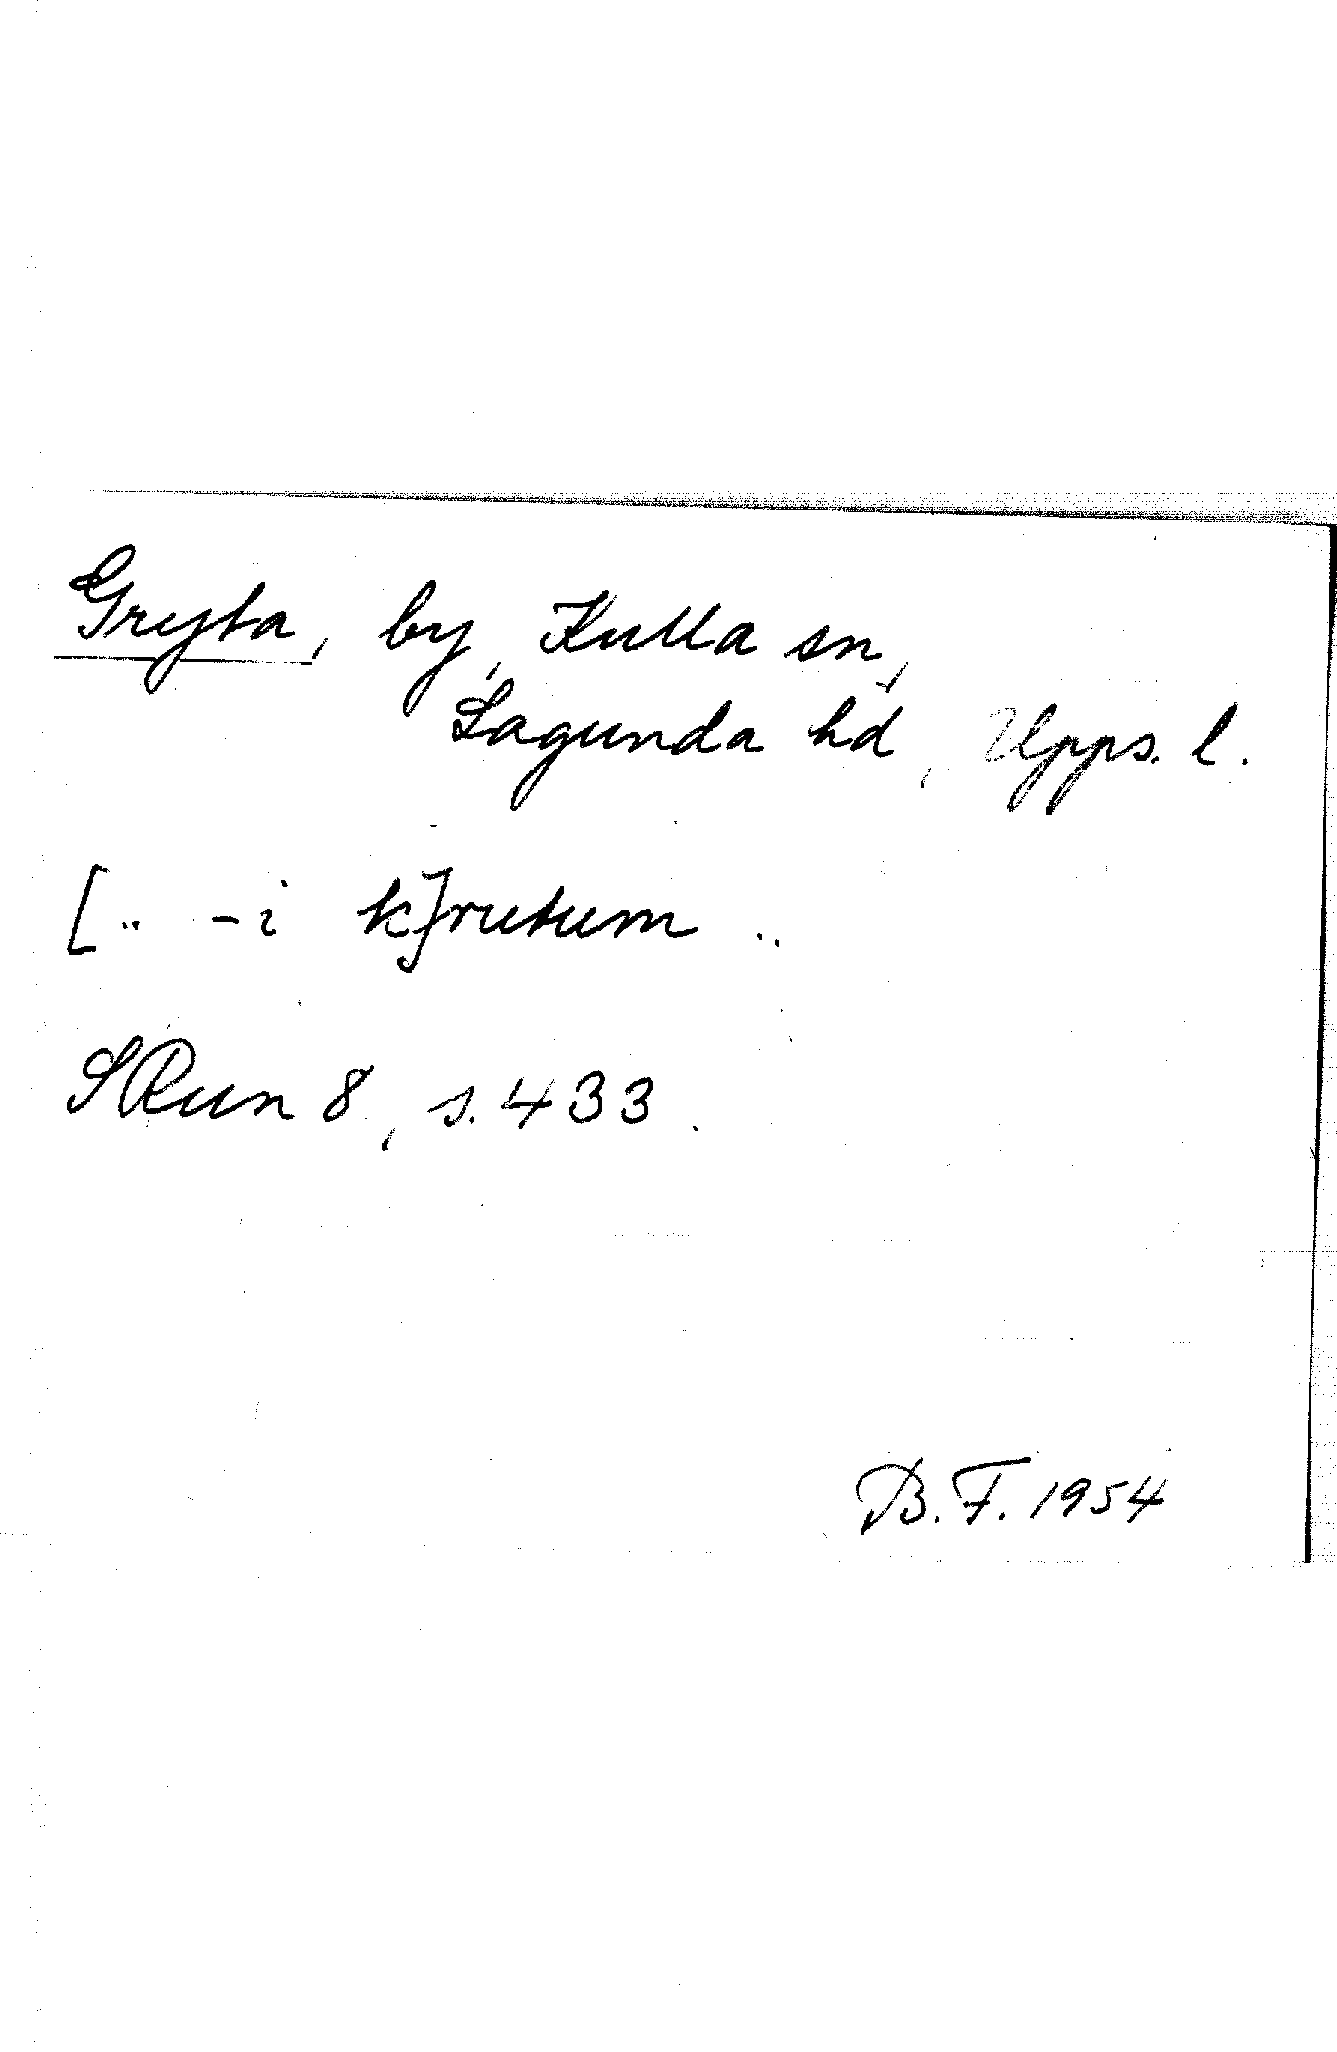 Gryta, by, Kulla sn,
Lagunda hd, Upps. l.
[.. -i k]rutum ..
SRun 8, s. 433.
B. F. 1954